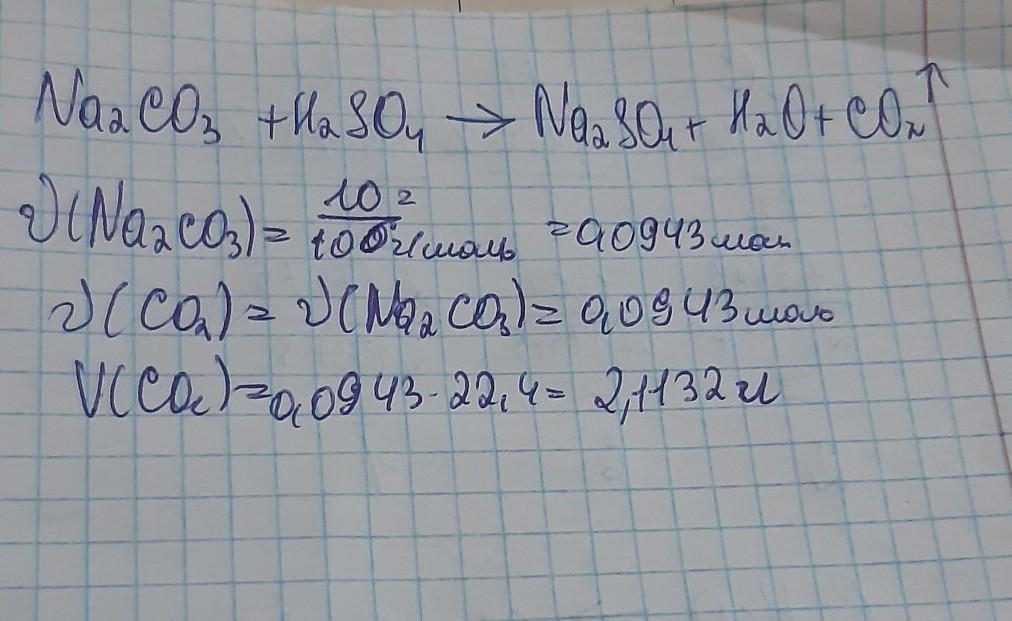 Na₂CO₃ + H₂SO₄ → Na₂SO₄ + H₂O + CO₂↑
ν(Na₂CO₃) = 10 г / 106 г/моль = 0,0943 моль
ν(CO₂) = ν(Na₂CO₃) = 0,0943 моль
V(CO₂) = 0,0943 · 22,4 = 2,1132 л